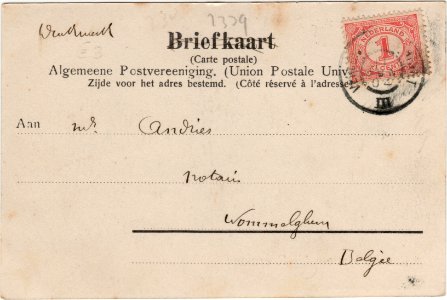 2329
Briefkaart
(Carte postale)
Algemeene Postvereeniging. (Union Postale Univ
Zijde voor het adres bestemd. (Côté réservé à l'adresse
NEDERLAND
1
III
Aan Mr. Andries
notaris
Wommelghem
Belgie